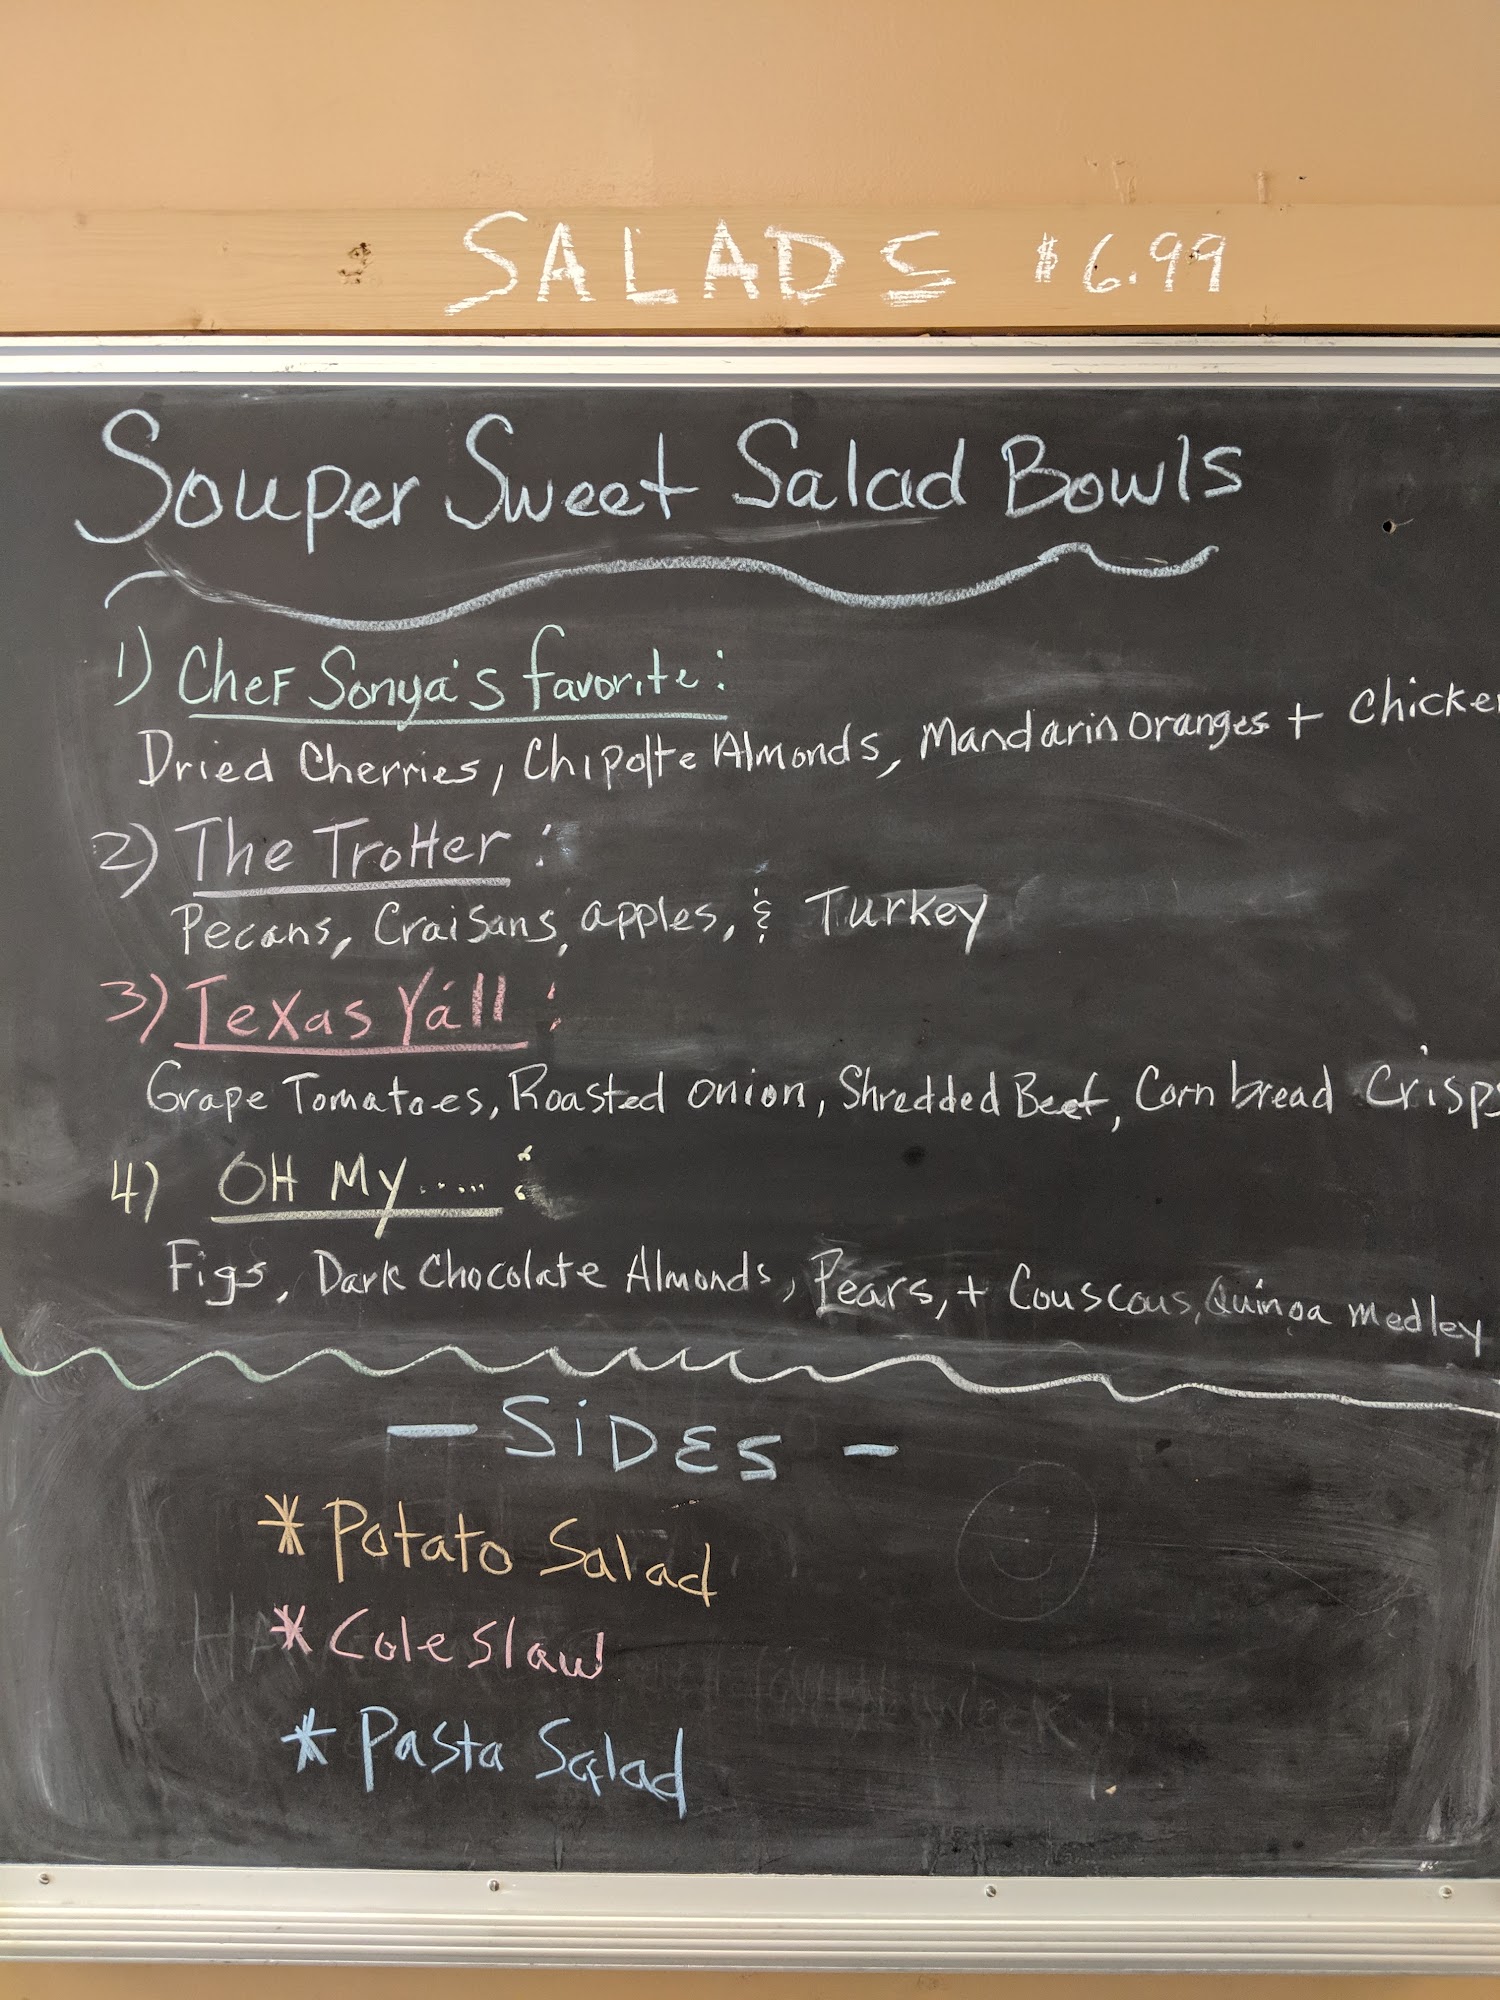 SALADS $6.99
Souper Sweet Salad Bowls
1) Chef Sonya's favorite:
Dried Cherries, Chipolte Almonds, Mandarin oranges + chicken
2) The Trotter:
Pecans, Craisans, apples, & Turkey
3) Texas Ya'll:
Grape Tomatoes, Roasted onion, Shredded Beef, Corn bread Crisps
4) OH MY.....:
Figs, Dark Chocolate Almonds, Pears, + Couscous, Quinoa medley
- SiDES -
* Potato Salad
* Cole slaw
* Pasta Salad